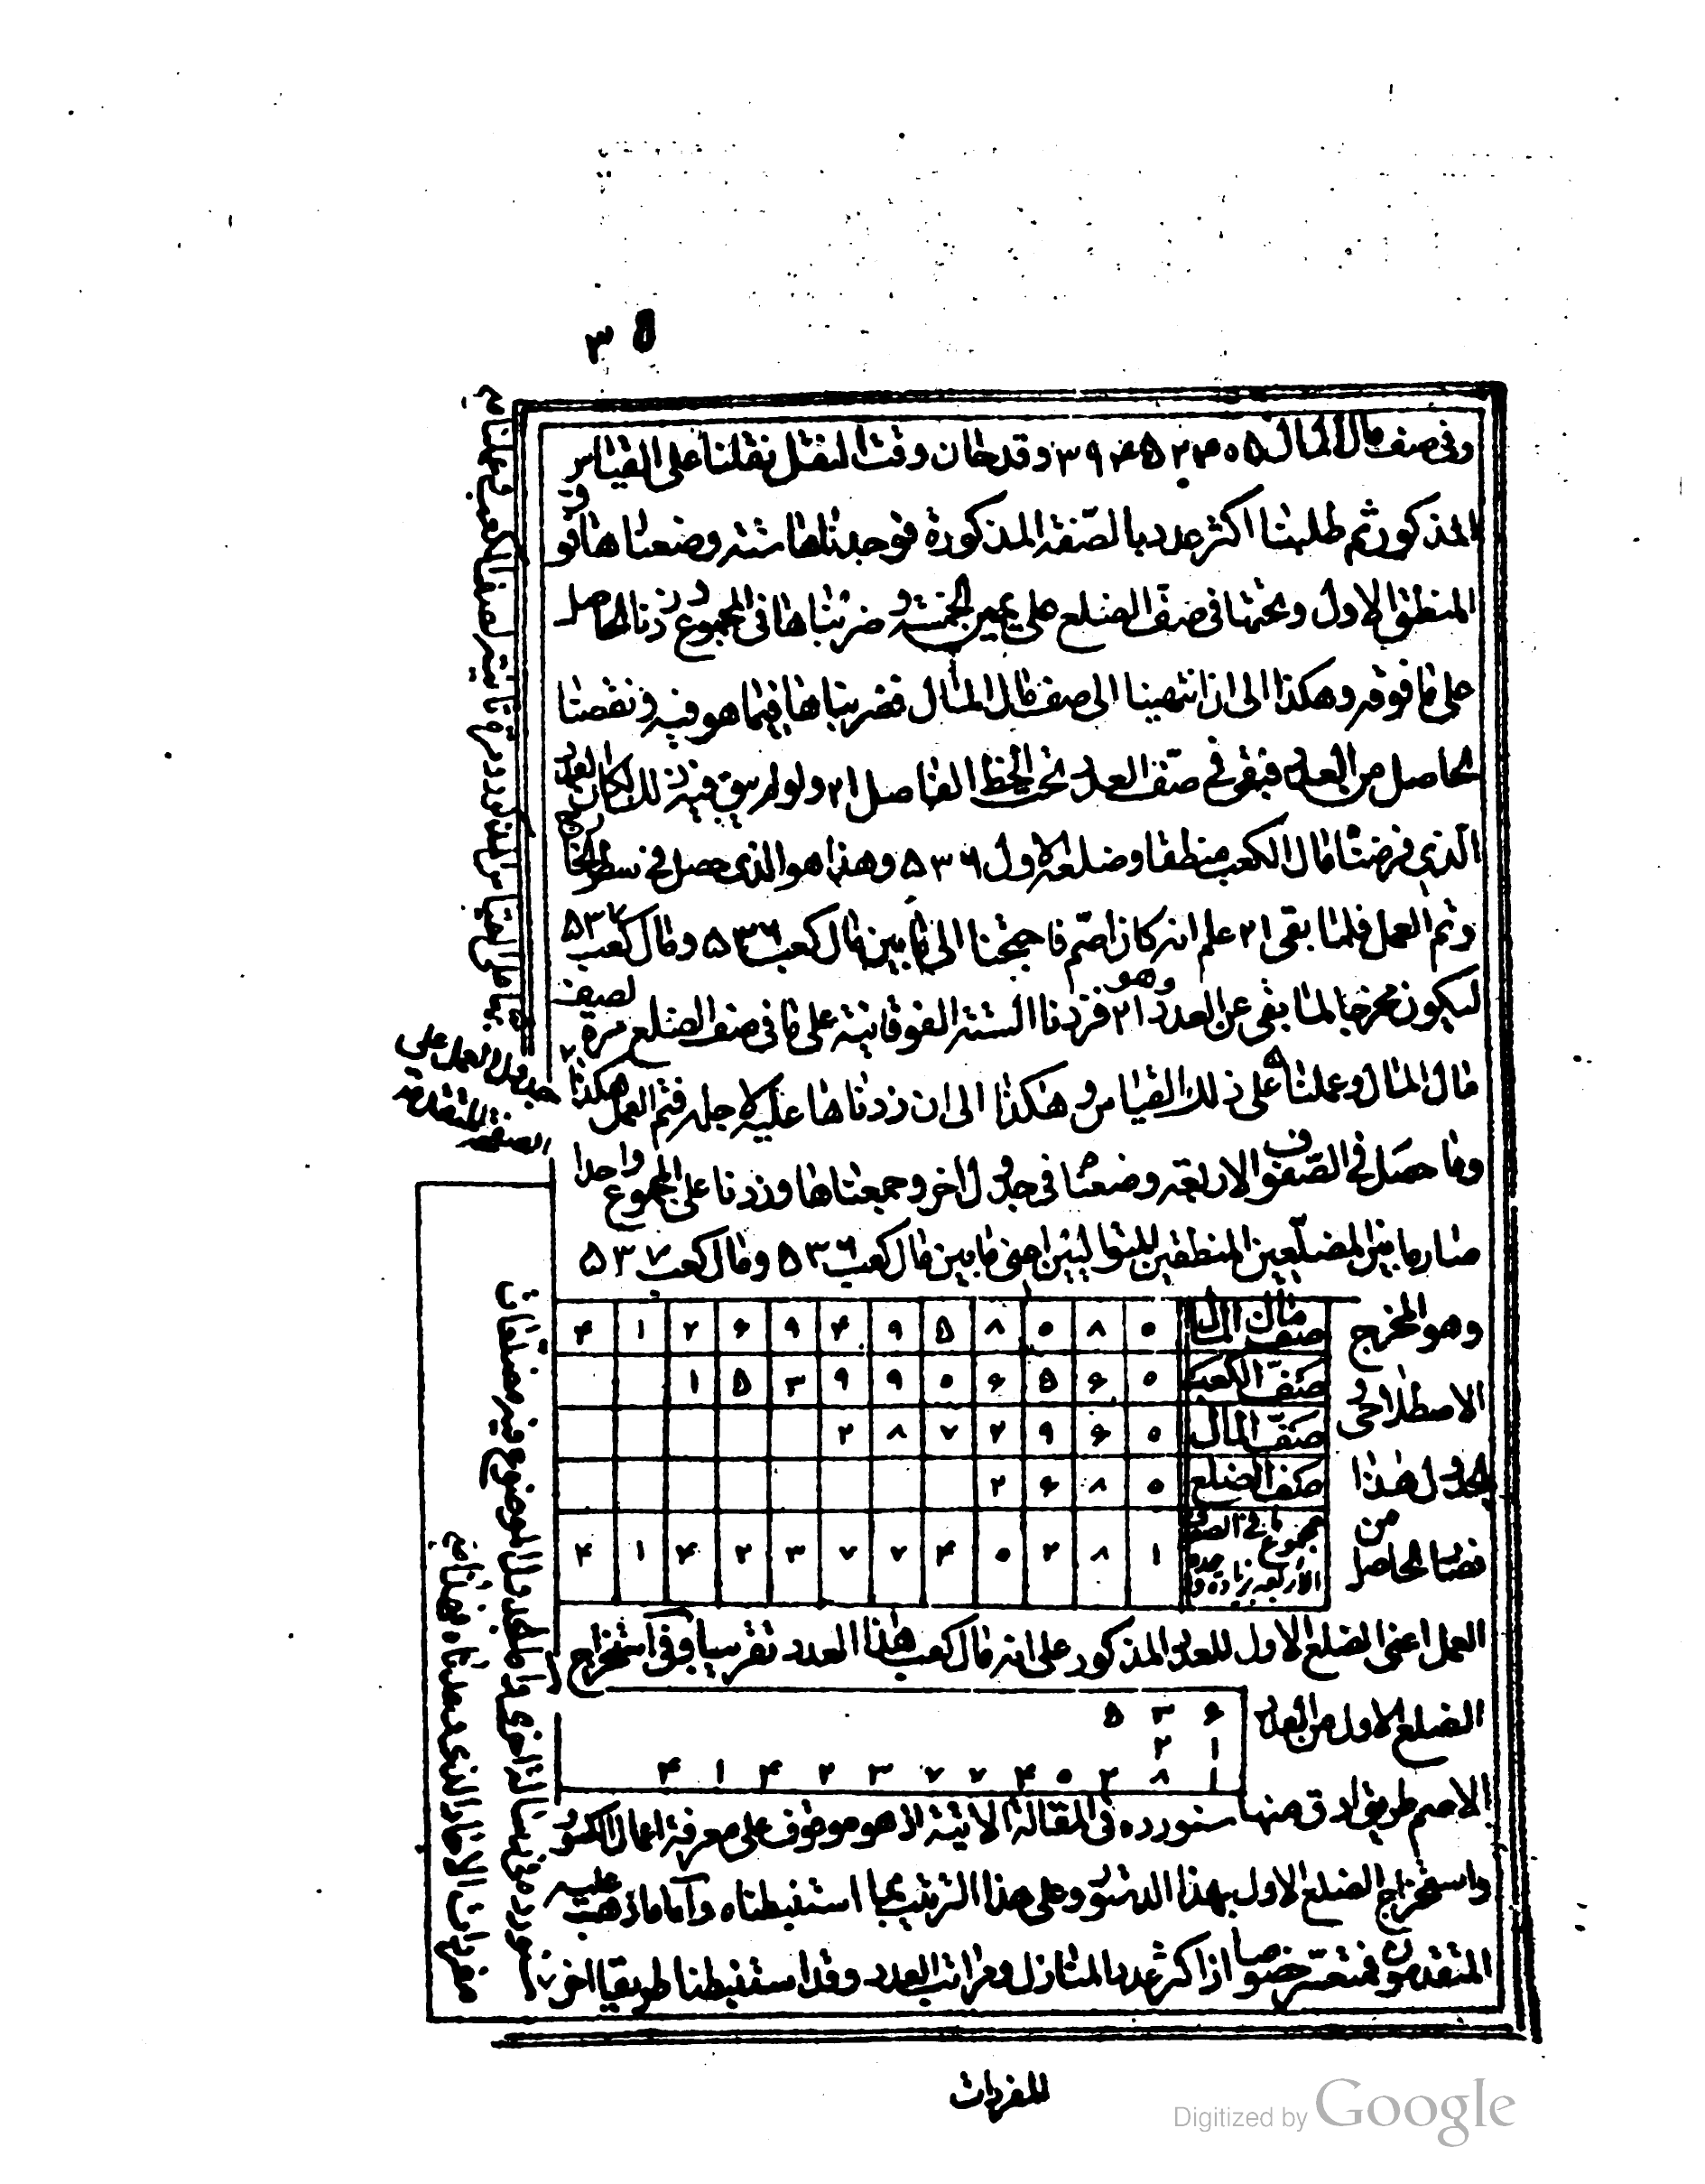 ٣٥
وفى صنف مال المال ٣٩٤٥٢٣٠٥ وقد حان وقت النقل نقلنا على القياس
المذكور ثم طلبنا اكثر عدد بالصفة المذكورة فوجدناها ستة وضعناها فوق
المنطق الاول وتحتها فى صف الضلع على يمين الخمسة و ضربناها فى المجموع و زدنا الحاصل
على ما فوقه وهكذا الى ان انتهينا الى صف مال المال فضربناها فيما هو فيه و نقصنا
الحاصل من العدد فبقى فى صف العدد تحت الخط الفاصل ٢١ ولو لم يبق فيه ذلك لكان العدد
الذى فرضناه مال الكعب منطقا وضلعه الاول ٥٣٦ وهذا هو الذى حصل فى سطر الخارج
وتم العمل فلما بقى ٢١ علم انه كان اصم فاحتجنا الى ما بين مال كعب ٥٣٦ ومال كعب ٥٣٧
ليكون مخرجا لما بقى عن العدد وهو ٢١ فزدنا الستة الفوقانية على ما فى صف الضلع مرة لصف
مال المال وعملنا على ذلك القياس و هكذا الى ان زدناها عليه لاجله فتم العمل هكذا
وما حصل فى الصفوف الاربعة وضعناه فى جدول اخر وجمعناها وزدنا على المجموع واحدا
صار ما بين المضلعين المنطقين المتواليين اعنى ما بين مال كعب ٥٣٦ ومال كعب ٥٣٧
وهو المخرج
الاصطلاحى
الجدول هذا
فصار الحاصل من
صف مال المال ٤ ١ ٢ ٦ ٩ ٤ ٩ ٥ ٨ ٠ ٨ ٠
صف الكعب ١ ٥ ٣ ٩ ٩ ٠ ٦ ٥ ٦ ٠
صف المال ٢ ٨ ٧ ٢ ٩ ٦ ٠
صف الضلع ٢ ٦ ٨ ٠
مجموع ما فى الصفوف الاربعة بزيادة واحدة ٤ ١ ٤ ٢ ٣ ٧ ٧ ٤ ٠ ٢ ٨ ١
العمل اعنى الضلع الاول للعدد المذكور على انه مال كعب هذا العدد تقريبا وفى استخراج
الضلع الاول من العدد
٥ ٣ ٦
٢ ١
٤ ١ ٤ ٢ ٣ ٧ ٧ ٤ ٠ ٢ ٨ ١
الاصم طريق ادق منها سنورده فى المقالة الآتية اذ هو موقوف على معرفة اعمال الكسور
واستخراج الضلع الاول بهذا الدستور وعلى هذا الترتيب مما استنبطناه وأما ما ذهبت عليه
المتقدمون فمتعسر خصوصا اذا كثر عدد المنازل ومراتب العدد وقد استنبطنا طريقا اخر
للمفردات
جدول العمل على
الصفحة المتقدمة
Digitized by Google